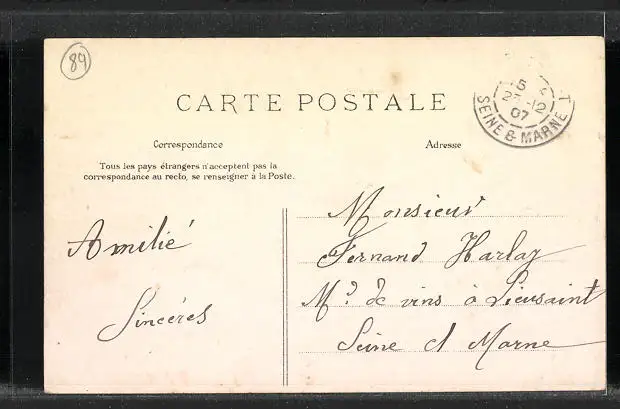 89
CARTE POSTALE
5
27-12
07
SEINE & MARNE
Correspondance
Adresse
Tous les pays étrangers n'acceptent pas la
correspondance au recto, se renseigner à la Poste.
Amitié
Sincéres
Monsieur
Fernand Harlay
Md. de vins à Lieusaint
Seine et Marne